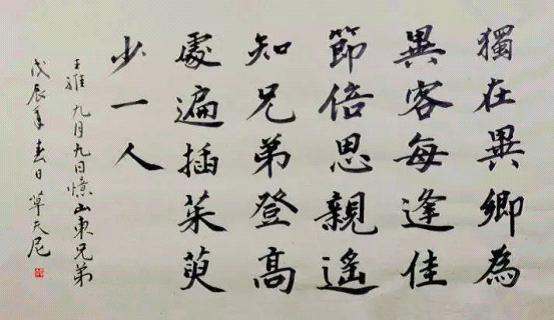 獨在異鄉為
異客每逢佳
節倍思親遙
知兄弟登高
處遍插茱萸
少一人
王維 九月九日憶山東兄弟
戊辰年春日